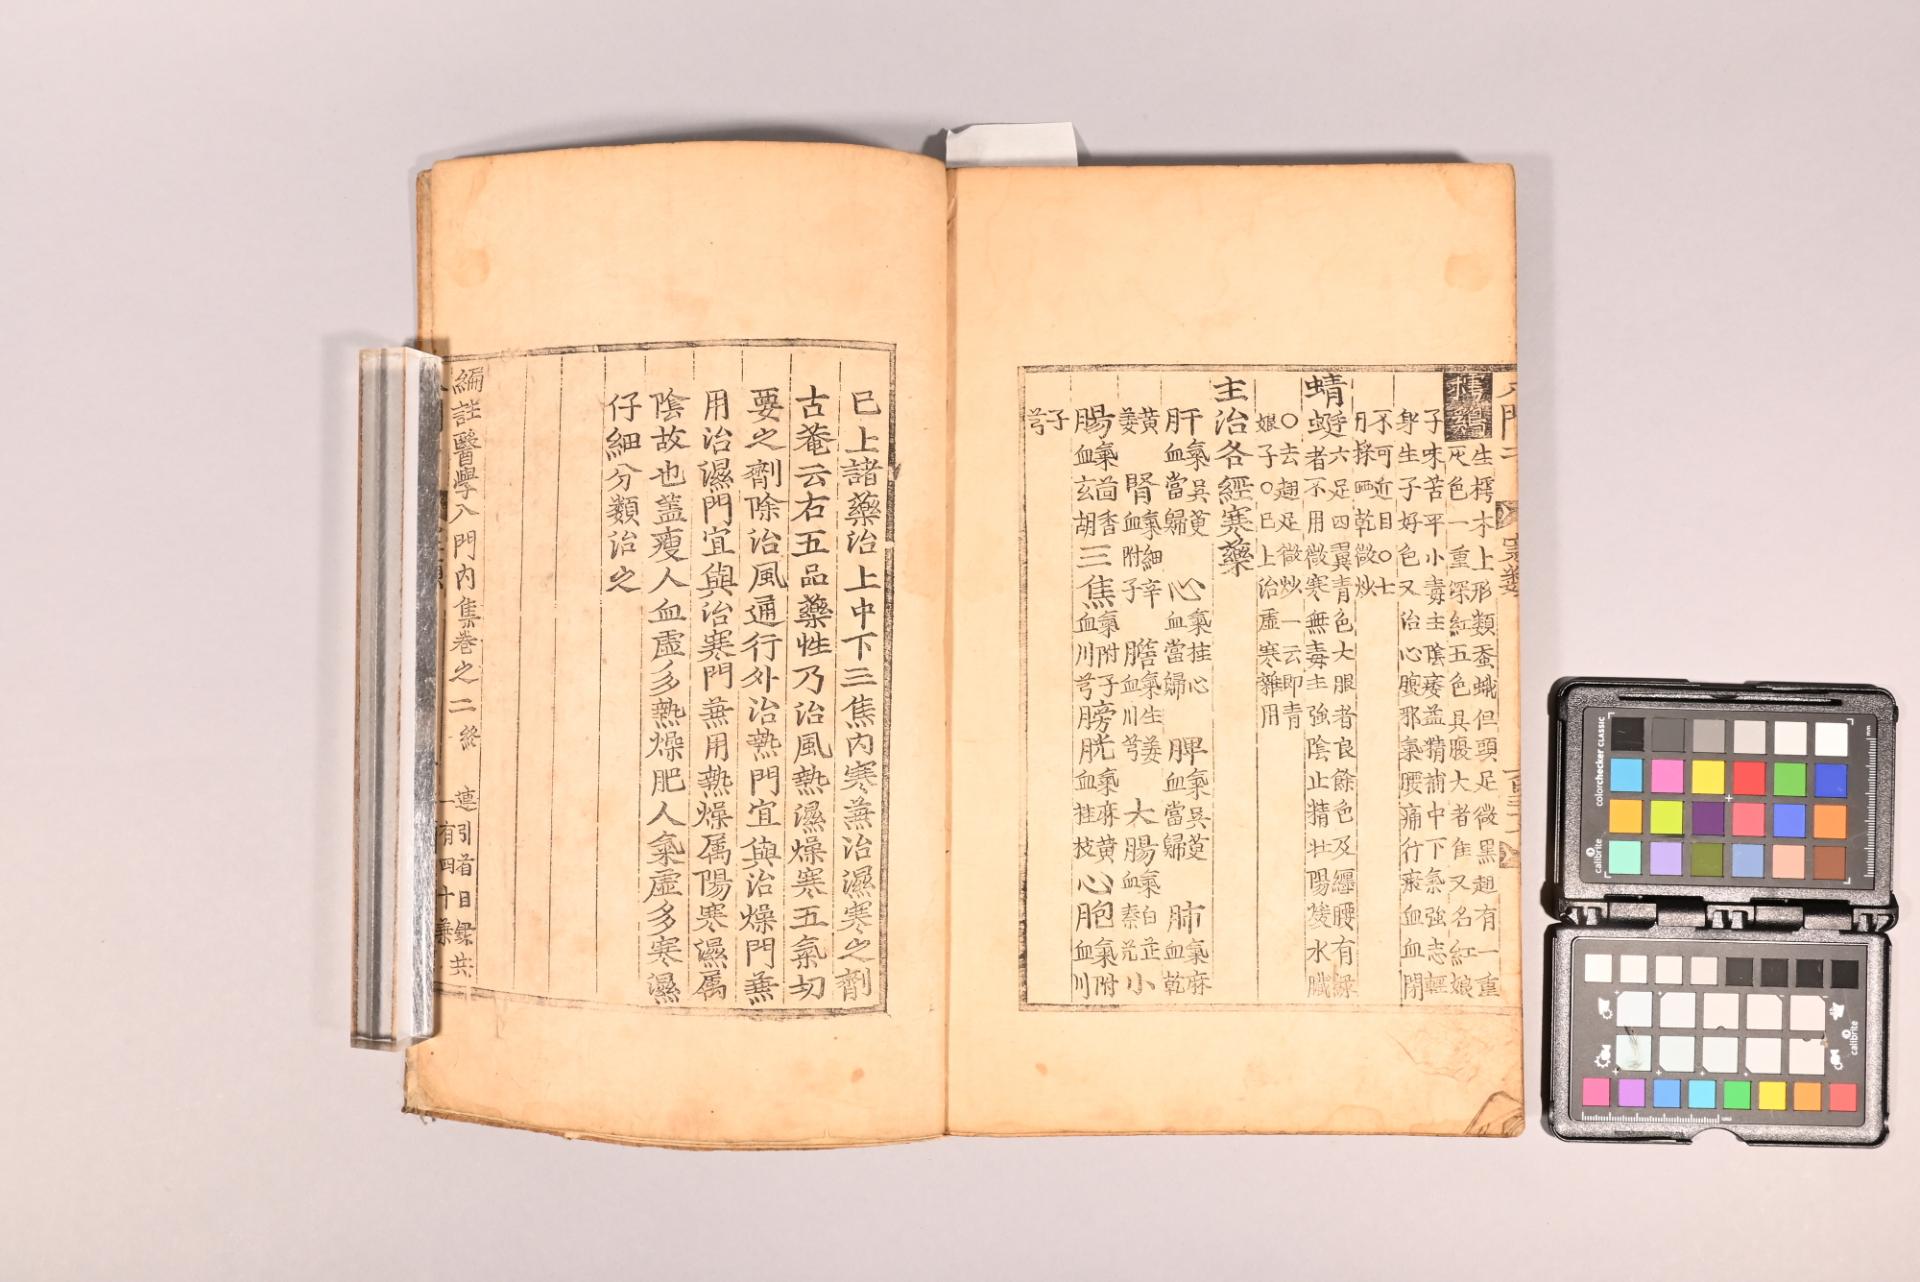 樗鷄
生樗木上形類蚕蛾但頭足微黑翅有一重
灰色一重深紅五色具腹大者佳又名紅娘
子味苦平小毒主陰痿益精補中下氣強志輕
身生子好色又治心腹邪氣腰痛行瘀血血閉
不可近目○七
月採晒乾微炒
蜻蜓
六足四翼青色大眼者良餘色及纒腰有綠
者不用微寒無毒主強陰止精壯陽煖水臟
○去翅足微炒一云即青
娘子○已上治虛寒雜用
主治各經寒藥
肝氣吳茰血當歸 心氣桂心血當歸 脾氣吳茰血當歸 肺氣麻
黃血乾
姜 腎氣細辛血附子 膽氣生姜血川芎 大腸氣白芷血秦艽 小
腸氣茴香血玄胡 三焦氣附子血川芎 膀胱氣麻黃血桂枝 心胞氣附
子血川
芎
已上諸藥治上中下三焦內寒兼治濕寒之劑
古菴云右五品藥性乃治風熱濕燥寒五氣切
要之劑除治風通行外治熱門宜與治燥門兼
用治濕門宜與治寒門兼用熱燥属陽寒濕属
陰故也蓋瘦人血虛多熱燥肥人氣虛多寒濕
仔細分類治之
編註醫學八門內集卷之二終
連引首目錄共
一百四十葉
calibrite
colorchecker CLASSIC
calibrite